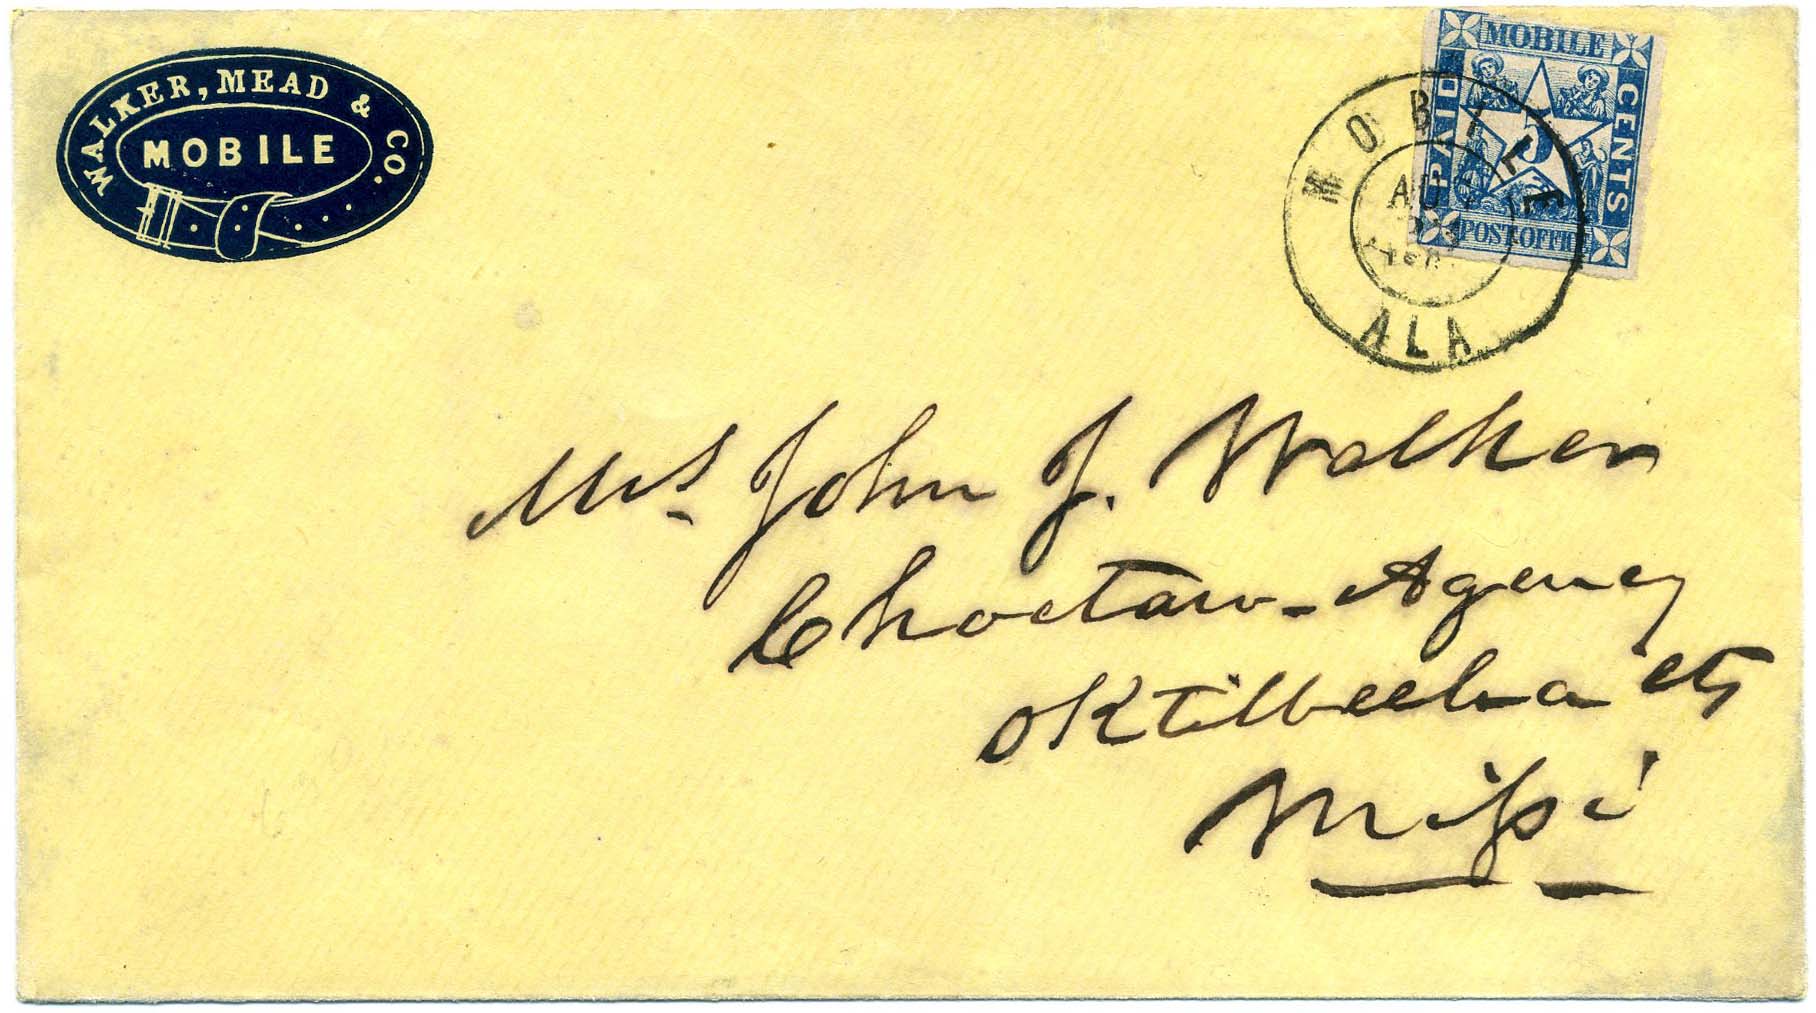 WALKER, MEAD & CO.
MOBILE
MOBILE
PAID
5
CENTS
POST OFFICE
MOBILE
AU
ALA
Mrs John J. Walker
Choctaw-Agency
Oktibbeha Cty
Missi